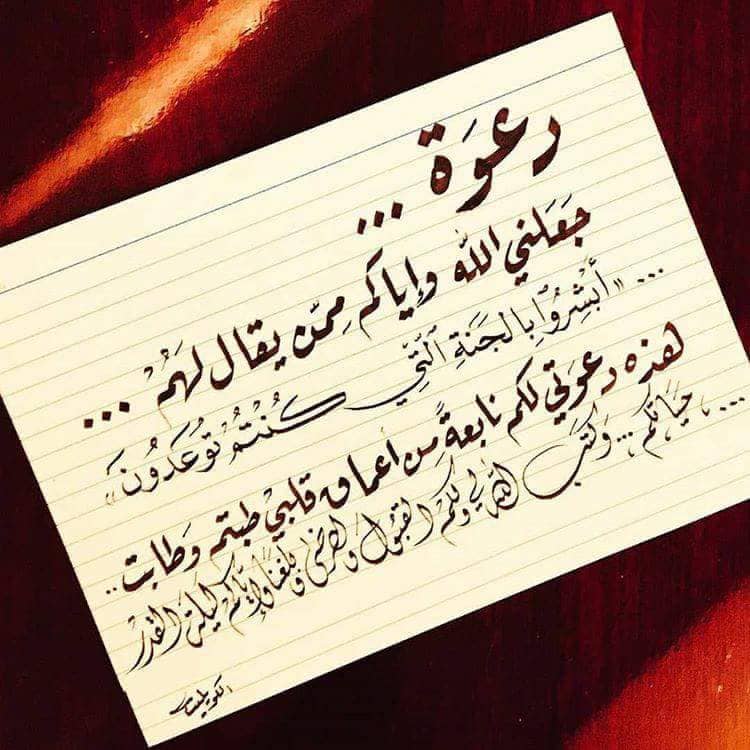 دعوَة ...
جَعَلني الله وإياكم مِمّن يقال لَهُمْ ...
... «أَبْشِرُوا بِالجَنةِ الّتِي كُنْتُمْ تُوعَدُونَ»
هَذه دعوَتي لكم نابعةً مِن أعماق قلبيْ طبتم وَطابت ..
... حَيَاتكم ... وَكتبَ الله لي ولكم القبُول والرضى وبلغنا وإيّاكم ليلة القدْر